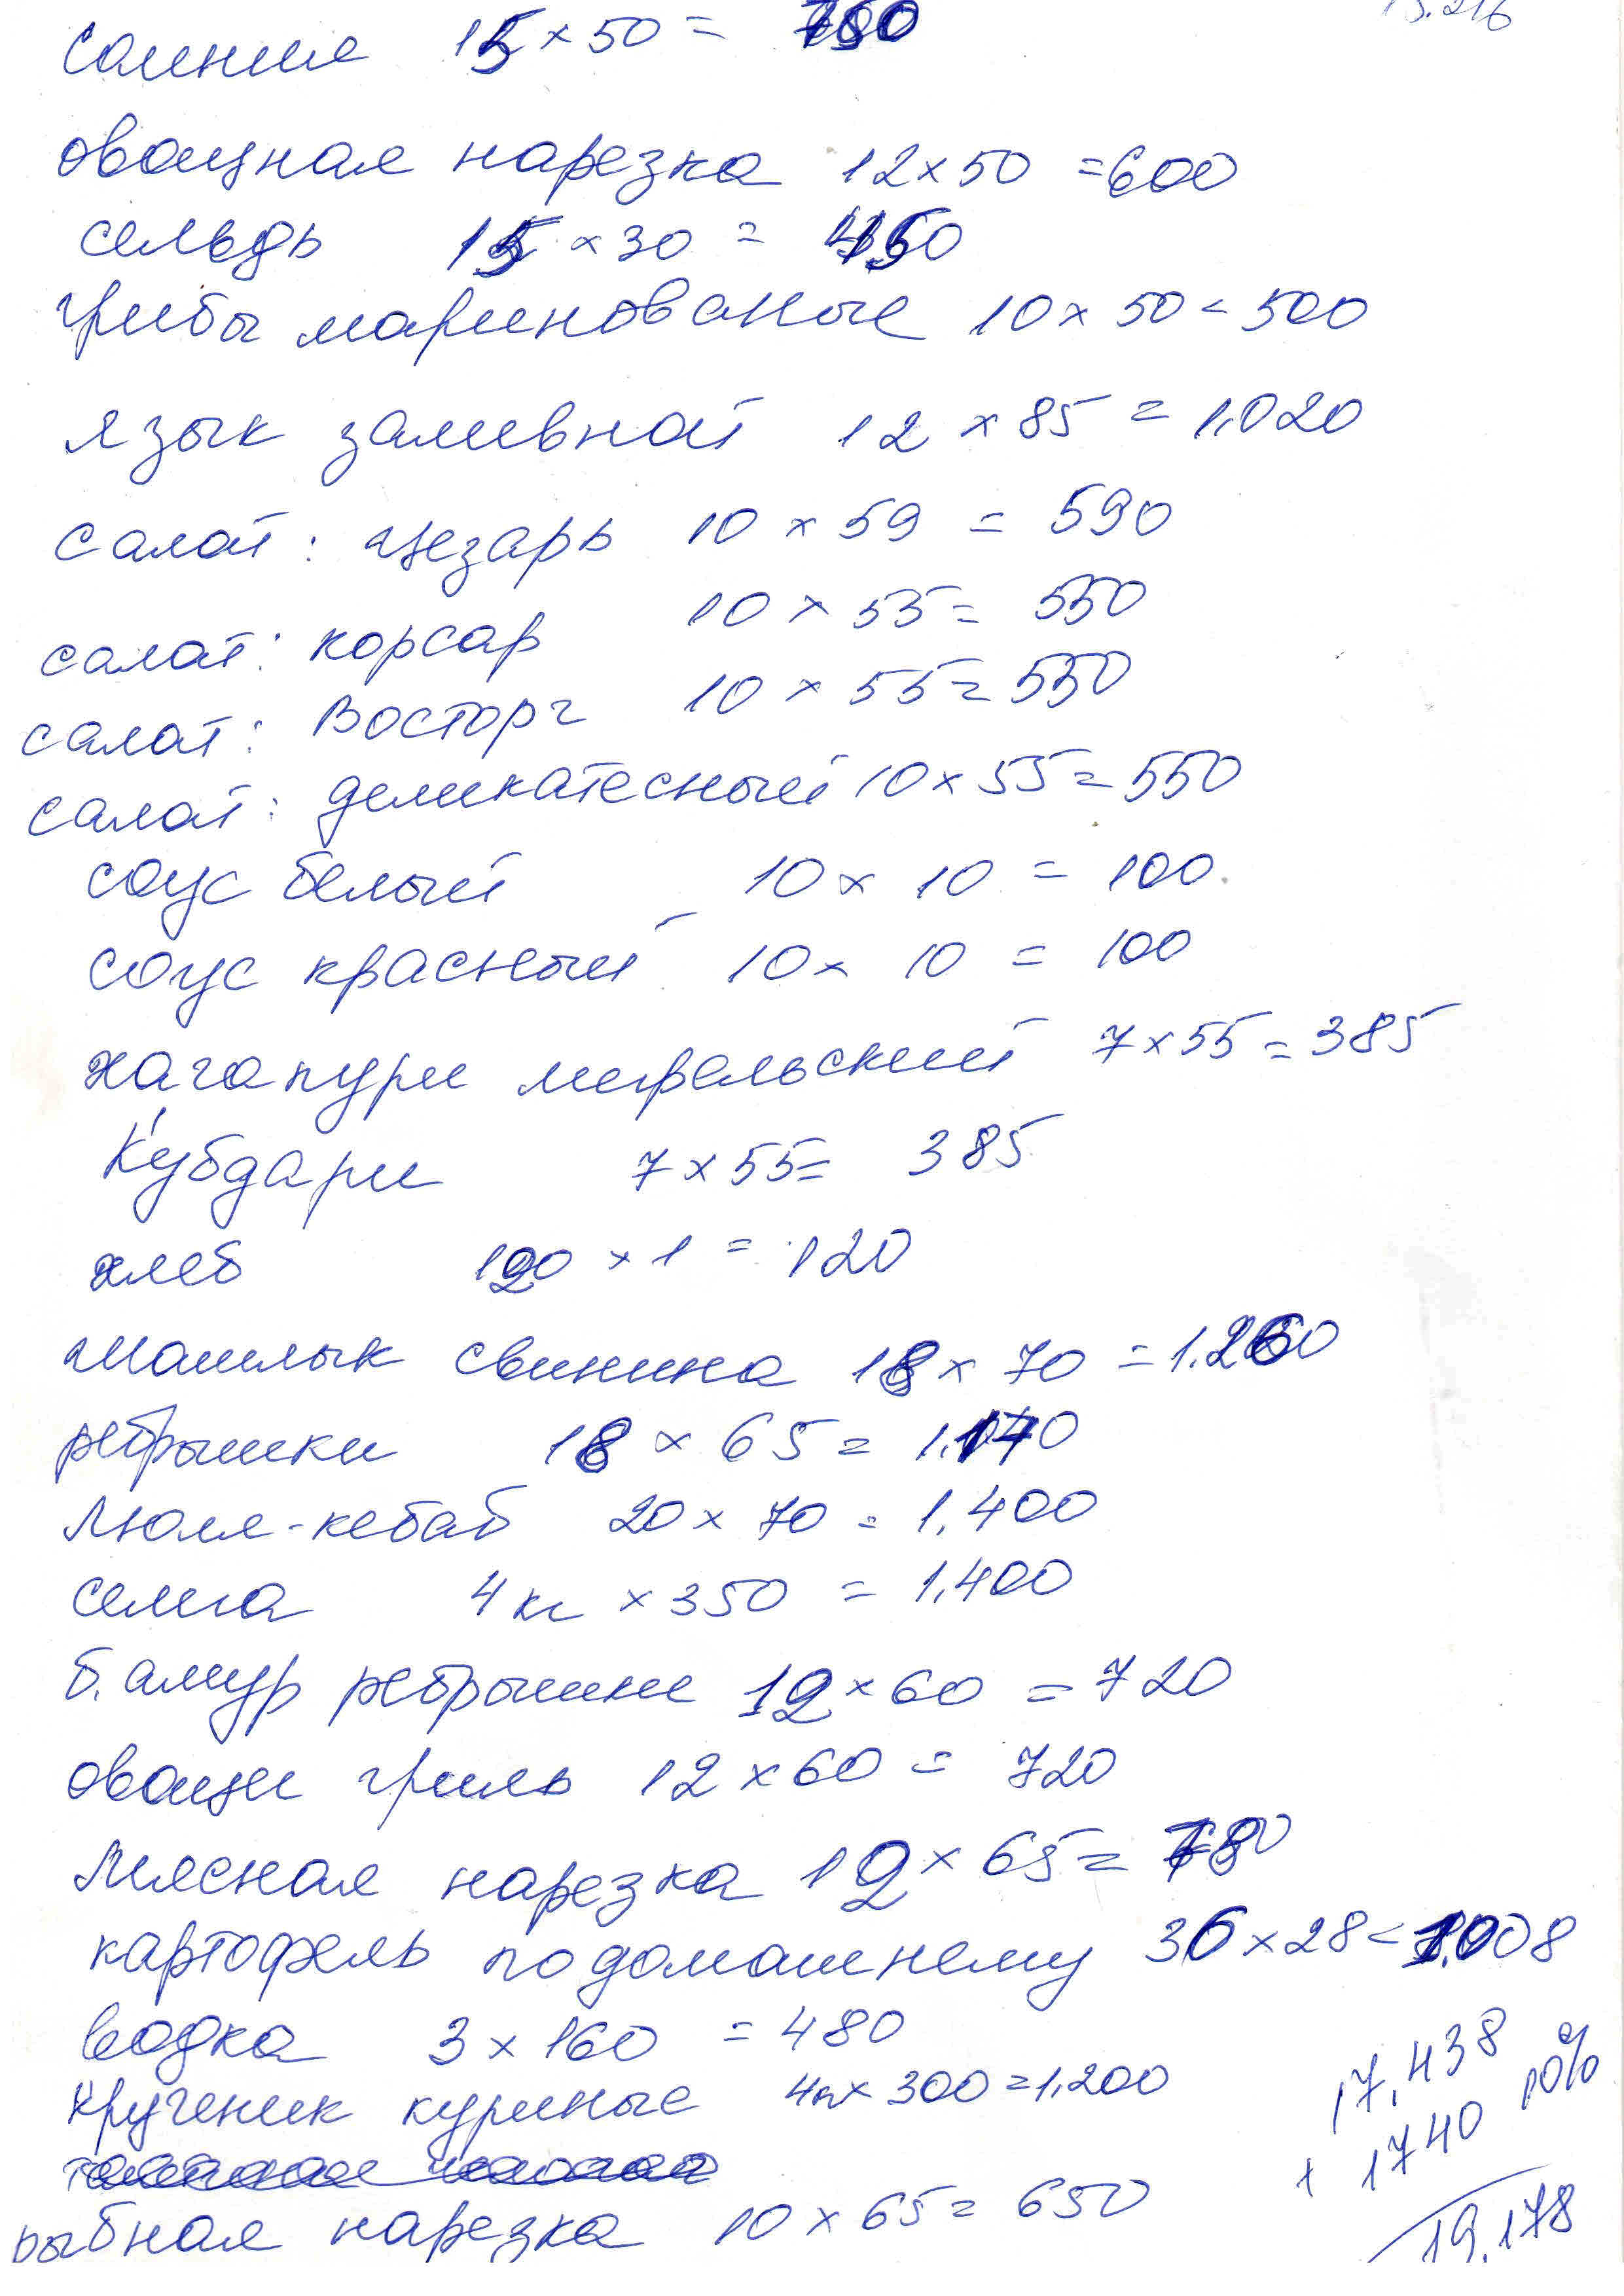 соления 15 x 50 = 750
овощная нарезка 12 x 50 = 600
сельдь 15 x 30 = 450
грибы маринованые 10 x 50 = 500
язык заливной 12 x 85 = 1.020
салат: цезарь 10 x 59 = 590
салат: корсар 10 x 55 = 550
салат: Восторг 10 x 55 = 550
салат: деликатесный 10 x 55 = 550
соус белый 10 x 10 = 100
соус красный 10 x 10 = 100
хачапури 7 x 55 = 385
Кубдари 7 x 55 = 385
хлеб 120 x 1 = 120
шашлык свинина 18 x 70 = 1.260
ребрышки 18 x 65 = 1.170
Люля-кебаб 20 x 70 = 1.400
семга 4 кг x 350 = 1.400
б. амур ребрышки 12 x 60 = 720
овощи гриль 12 x 60 = 720
Мясная нарезка 12 x 65 = 780
картофель по домашнему 36 x 28 = 1.008
водка 3 x 160 = 480
крученик куриные x 300 = 1.200
рыбная нарезка 10 x 65 = 650
17.438
+ 1740 10%
19.178